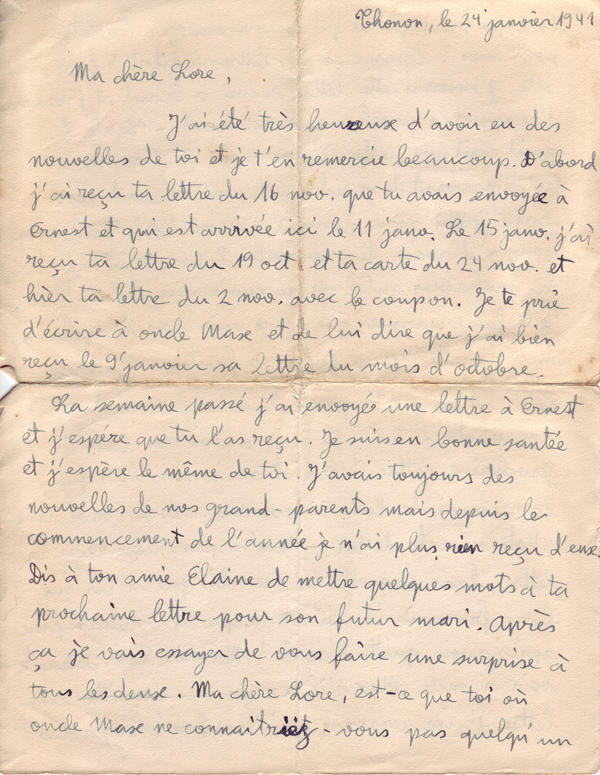 Thonon, le 24 janvier 1941
Ma chère Lore,
J'ai été très heureux d'avoir eu des
nouvelles de toi et je t'en remercie beaucoup. D'abord
j'ai reçu ta lettre du 16 nov. que tu avais envoyée à
Ernest et qui est arrivée ici le 11 janv. Le 15 janv. j'ai
reçu ta lettre du 19 oct. et ta carte du 24 nov. et
hier ta lettre du 2 nov. avec le coupon. Je te prie
d'écrire à oncle Max et de lui dire que j'ai bien
reçu le 9 janvier sa lettre du mois d'octobre.
La semaine passé j'ai envoyé une lettre à Ernest
et j'espére que tu l'as reçu. Je suis en bonne santée
et j'espère le même de toi. J'avais toujours des
nouvelles de nos grand-parents mais depuis le
commencement de l'année je n'ai plus rien reçu d'eux.
Dis à ton amie Elaine de mettre quelques mots à ta
prochaine lettre pour son futur mari. Après
ça je vais essayer de vous faire une surprise à
tous les deux. Ma chère Lore, est-ce que toi où
oncle Max ne connaitriëz-vous pas quelqu'un